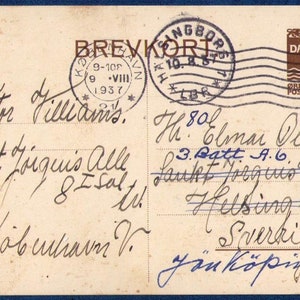 BREVKORT
KØBENHAVN
9 VIII
1937
HÄLSINGBORG 1
10.8.37
LBR
DA
Viktor Williams.
Sct. Jørgens Alle
8 I Sal
København V.
Hr. Elmar
3. Batt. A.6.
Sankt Jörgens
Helsing
Sveri
Jönköping